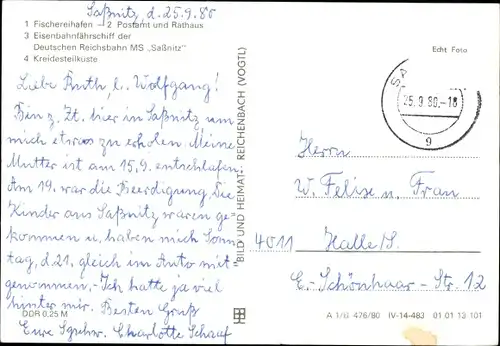 Saßnitz, d. 25.9.80
1 Fischereihafen 2 Postamt und Rathaus
3 Eisenbahnfährschiff der
Deutschen Reichsbahn MS „Saßnitz"
4 Kreidesteilküste
Liebe Ruth, l. Wolfgang!
Bin z. Zt. hier in Saßnitz um
mich etwas zu erholen. Meine
Mutter ist am 15.9. entschlafen.
Am 19. war die Beerdigung. Die
Kinder aus Saßnitz waren ge-
kommen u. haben mich Sonn
tag, d. 21. gleich im Auto mit-
genommen,- Ich hatte ja viel
hinter mir. Besten Gruß
DDR 0,25 M
Eure Charlotte Schauf
BILD UND HEIMAT · REICHENBACH (VOGTL)
Echt Foto
SA
25.9.80.-18
g
Herrn
W. Felise u. Frau
4011 Halle/S.
E.-Schönhaar-Str. 12
A 1/B 476/80 IV-14-483 01 01 13 101